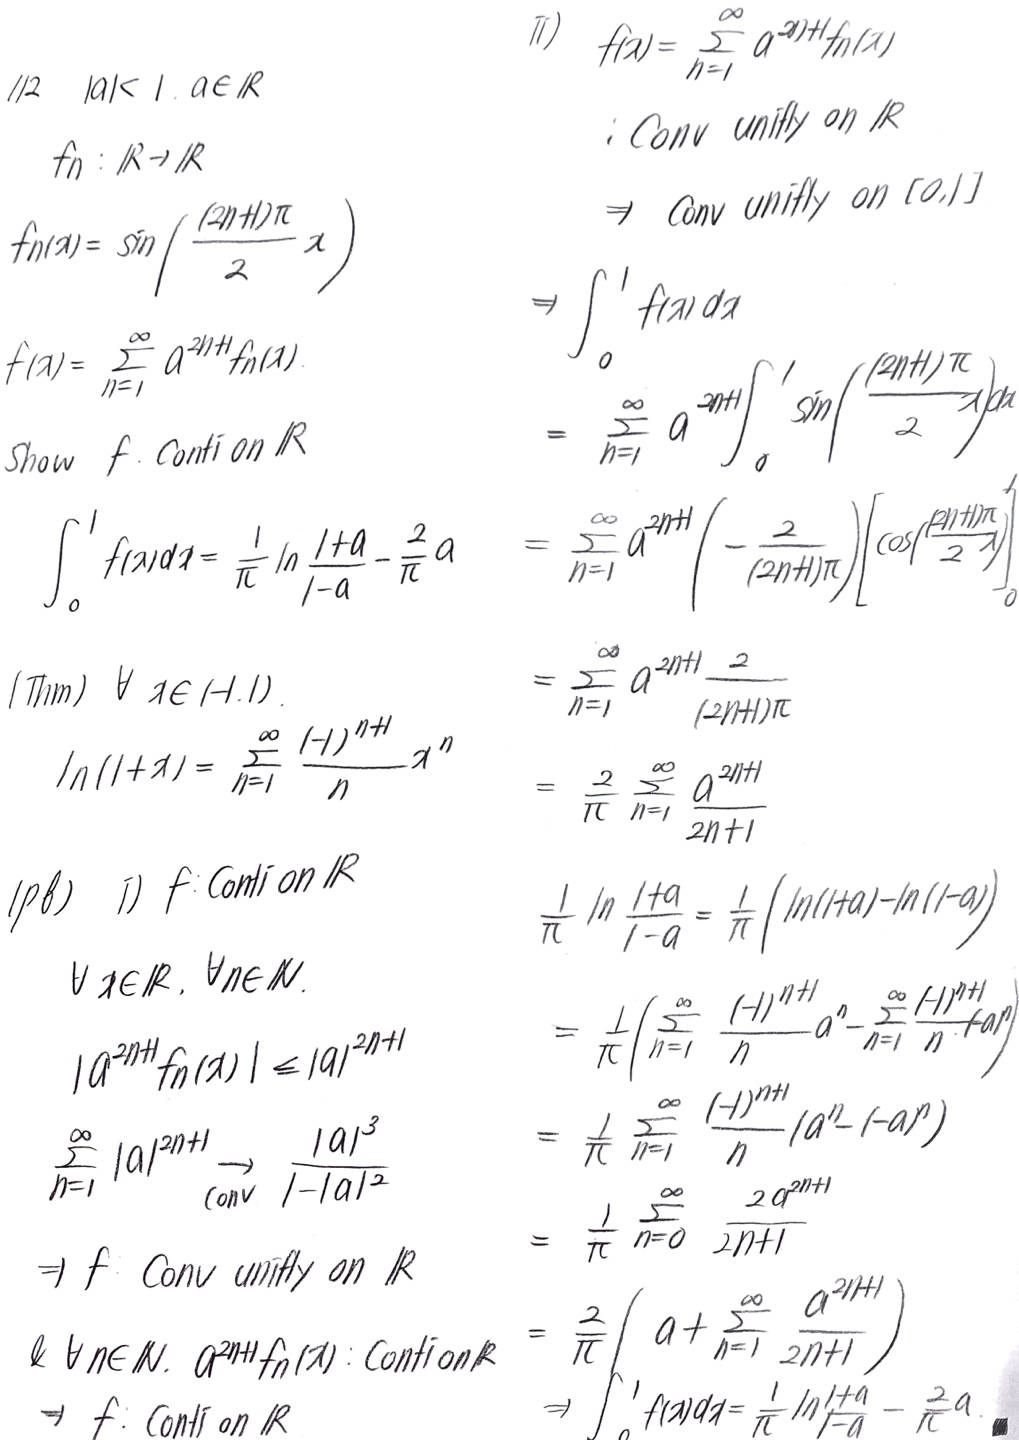 112 |a|<1. a∈ℝ
fn : ℝ→ℝ
fn(x) = sin( (2n+1)π/2 x )
f(x) = ∑_{n=1}^{∞} a^{2n+1} fn(x).
Show f. Conti on ℝ
∫_0^1 f(x)dx = 1/π ln (1+a)/(1-a) - 2/π a
(Thm) ∀ x∈(-1.1).
ln(1+x) = ∑_{n=1}^{∞} (-1)^{n+1}/n x^n
(pf) i) f: Conti on ℝ
∀ x∈ℝ, ∀n∈ℕ.
|a^{2n+1} fn(x)| ≤ |a|^{2n+1}
∑_{n=1}^{∞} |a|^{2n+1} →_{conv} |a|^3/(1-|a|^2)
⇒ f: Conv unifly on ℝ
& ∀n∈ℕ. a^{2n+1} fn(x) : Conti on ℝ
⇒ f: Conti on ℝ
ii) f(x) = ∑_{n=1}^{∞} a^{2n+1} fn(x)
: Conv unifly on ℝ
⇒ Conv unifly on [0,1]
⇒ ∫_0^1 f(x) dx
= ∑_{n=1}^{∞} a^{2n+1} ∫_0^1 sin( (2n+1)π/2 x)dx
= ∑_{n=1}^{∞} a^{2n+1} (- 2/((2n+1)π)) [cos( (2n+1)π/2 x)]_0^1
= ∑_{n=1}^{∞} a^{2n+1} 2/((2n+1)π)
= 2/π ∑_{n=1}^{∞} a^{2n+1}/(2n+1)
1/π ln (1+a)/(1-a) = 1/π (ln(1+a)-ln(1-a))
= 1/π ( ∑_{n=1}^{∞} (-1)^{n+1}/n a^n - ∑_{n=1}^{∞} (-1)^{n+1}/n · (-a)^n )
= 1/π ∑_{n=1}^{∞} (-1)^{n+1}/n (a^n - (-a)^n)
= 1/π ∑_{n=0}^{∞} 2a^{2n+1}/(2n+1)
= 2/π ( a + ∑_{n=1}^{∞} a^{2n+1}/(2n+1) )
⇒ ∫_0^1 f(x)dx = 1/π ln (1+a)/(1-a) - 2/π a. ■